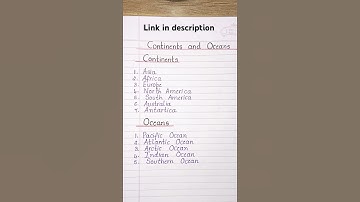 Link in description
Continents and Oceans
Continents
1. Asia
2. Africa
3. Europe
4. North America
5. South America
6. Australia
7. Antartica
Oceans
1. Pacific Ocean
2. Atlantic Ocean
3. Arctic Ocean
4. Indian Ocean
5. Southern Ocean